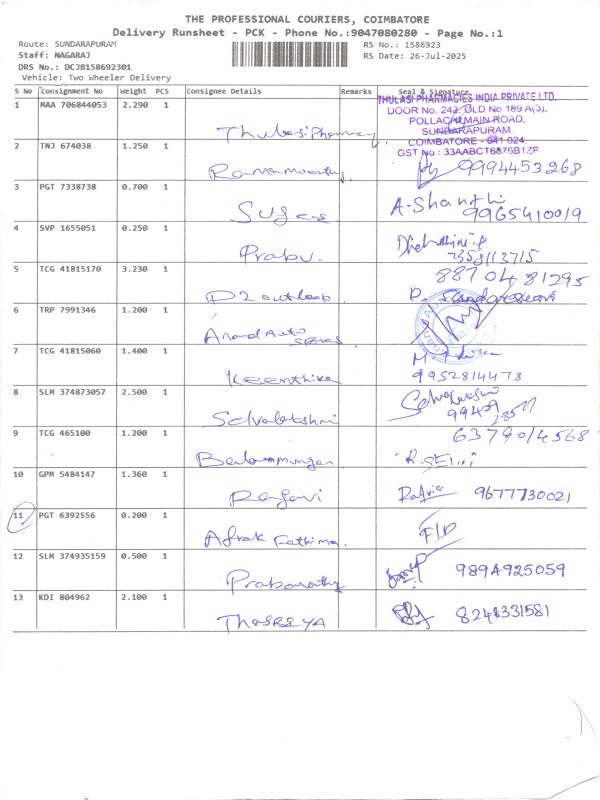 THE PROFESSIONAL COURIERS, COIMBATORE
Delivery Runsheet - PCK - Phone No.:9047080280 - Page No.:1
Route: SUNDARAPURAM
RS No.: 1586923
Staff: NAGARAJ
RS Date: 26-Jul-2025
DRS No.: DCJB158692301
Vehicle: Two Wheeler Delivery
S No Consignment No Weight PCS Consignee Details Remarks Seal & Signature
THULASI PHARMACIES INDIA PRIVATE LTD.
1 MAA 706844053 2.290 1
DOOR No. 242, OLD No 189 A(3),
POLLACHI MAIN ROAD,
SUNDARAPURAM,
Thulasi Pharmacy
COIMBATORE - 641 024.
GST No : 33AABCT6876B1ZF
2 TNJ 674038 1.250 1
Ramamoorthy. 9994453268
3 PGT 7338738 0.700 1
A-Shanthi
9965410019
4 SVP 1655051 0.250 1
Prabu.
7358113715
5 TCG 41815170 3.230 1
8870481295
6 TRP 7991346 1.200 1
Anand Auto
Spares
7 TCG 41815060 1.400 1
Keerthika
9952814478
8 SLM 374873057 2.500 1
Selvalakshmi
9 TCG 465100 1.200 1
6379014568
Balamurugan
10 GPM 5484147 1.360 1
Ragavi 9677730021
11 PGT 6392556 0.200 1
Afrak Fathima. F/D
12 SLM 374935159 0.500 1
9894925059
13 KDI 804962 2.100 1
8248331581